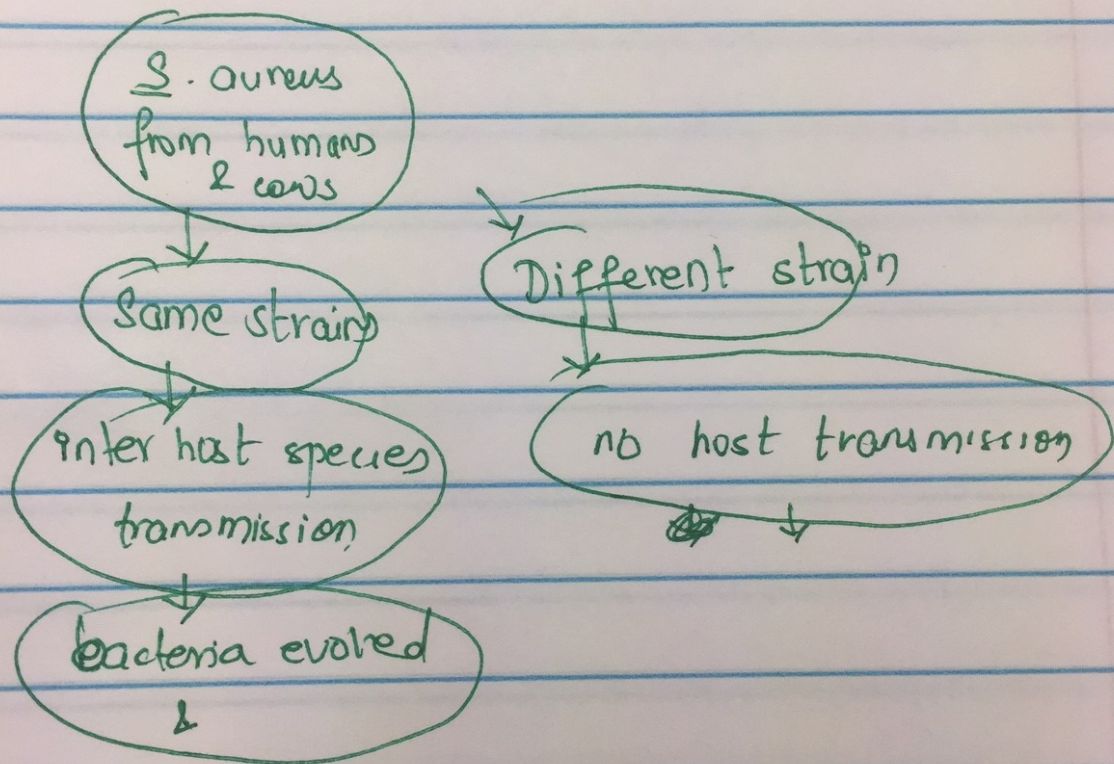 S. aureus
from humans
& cows
Same strain
inter host species
transmission
bacteria evolved
&
Different strain
no host transmission